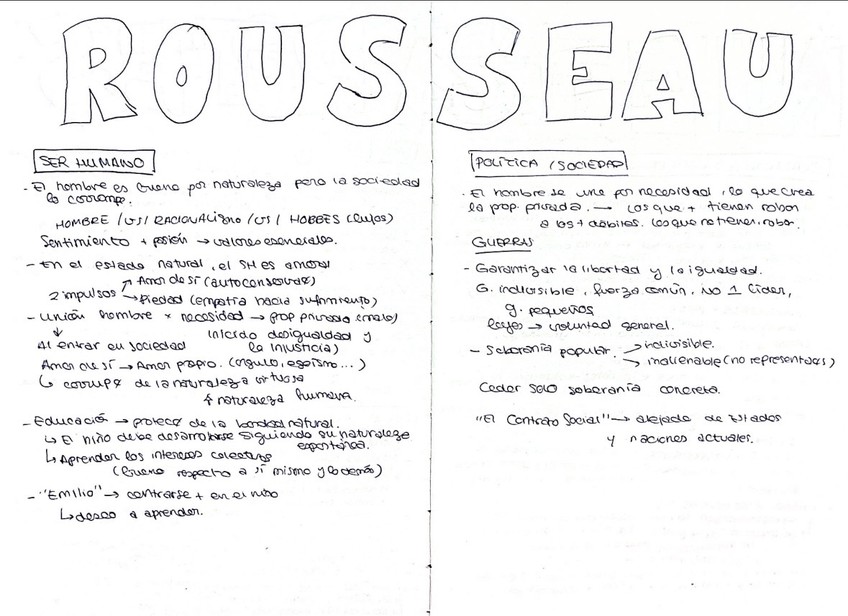 ROUSSEAU
SER HUMANO
- El hombre es bueno por naturaleza pero la sociedad
lo corrompe.
HOMBRE /VS/ RACIONALISMO /VS/ HOBBES (lupus)
Sentimiento + pasión → valores esenciales.
- En el estado natural, el SH es amoral
2 impulsos ↗ Amor de sí (autoconservar)
↘ Piedad (empatía hacia sufrimiento)
- Unión hombre x necesidad → prop privada (malo)
↓ inicido desigualdad y
Al entrar en sociedad la injusticia)
Amor de sí → Amor propio. (orgullo, egoísmo...)
↳ corrupº de la naturaleza virtuosa
naturaleza humana.
- Educación → protecº de la bondad natural.
↳ El niño debe desarrollarse siguiendo su naturaleza
espontánea.
↳ Aprender los intereses colectivos
(bueno respecto a sí mismo y lo demás)
- "Emilio" → centrarse + en el niño
↳ deseo a aprender.
POLÍTICA / SOCIEDAD
- El hombre se une por necesidad, lo que crea
la prop. privada. → Los que + tienen roban
a los + débiles. Los que no tienen, robar.
GUERRAS
- Garantizar la libertad y la igualdad.
G. indivisible, fuerza común. No 1 líder,
g. pequeños
leyes → voluntad general.
- Soberanía popular. ↗ indivisible.
↘ inalienable (no representar)
Ceder solo soberanía concreta.
"El Contrato Social" → alejado de Estados
y naciones actuales.